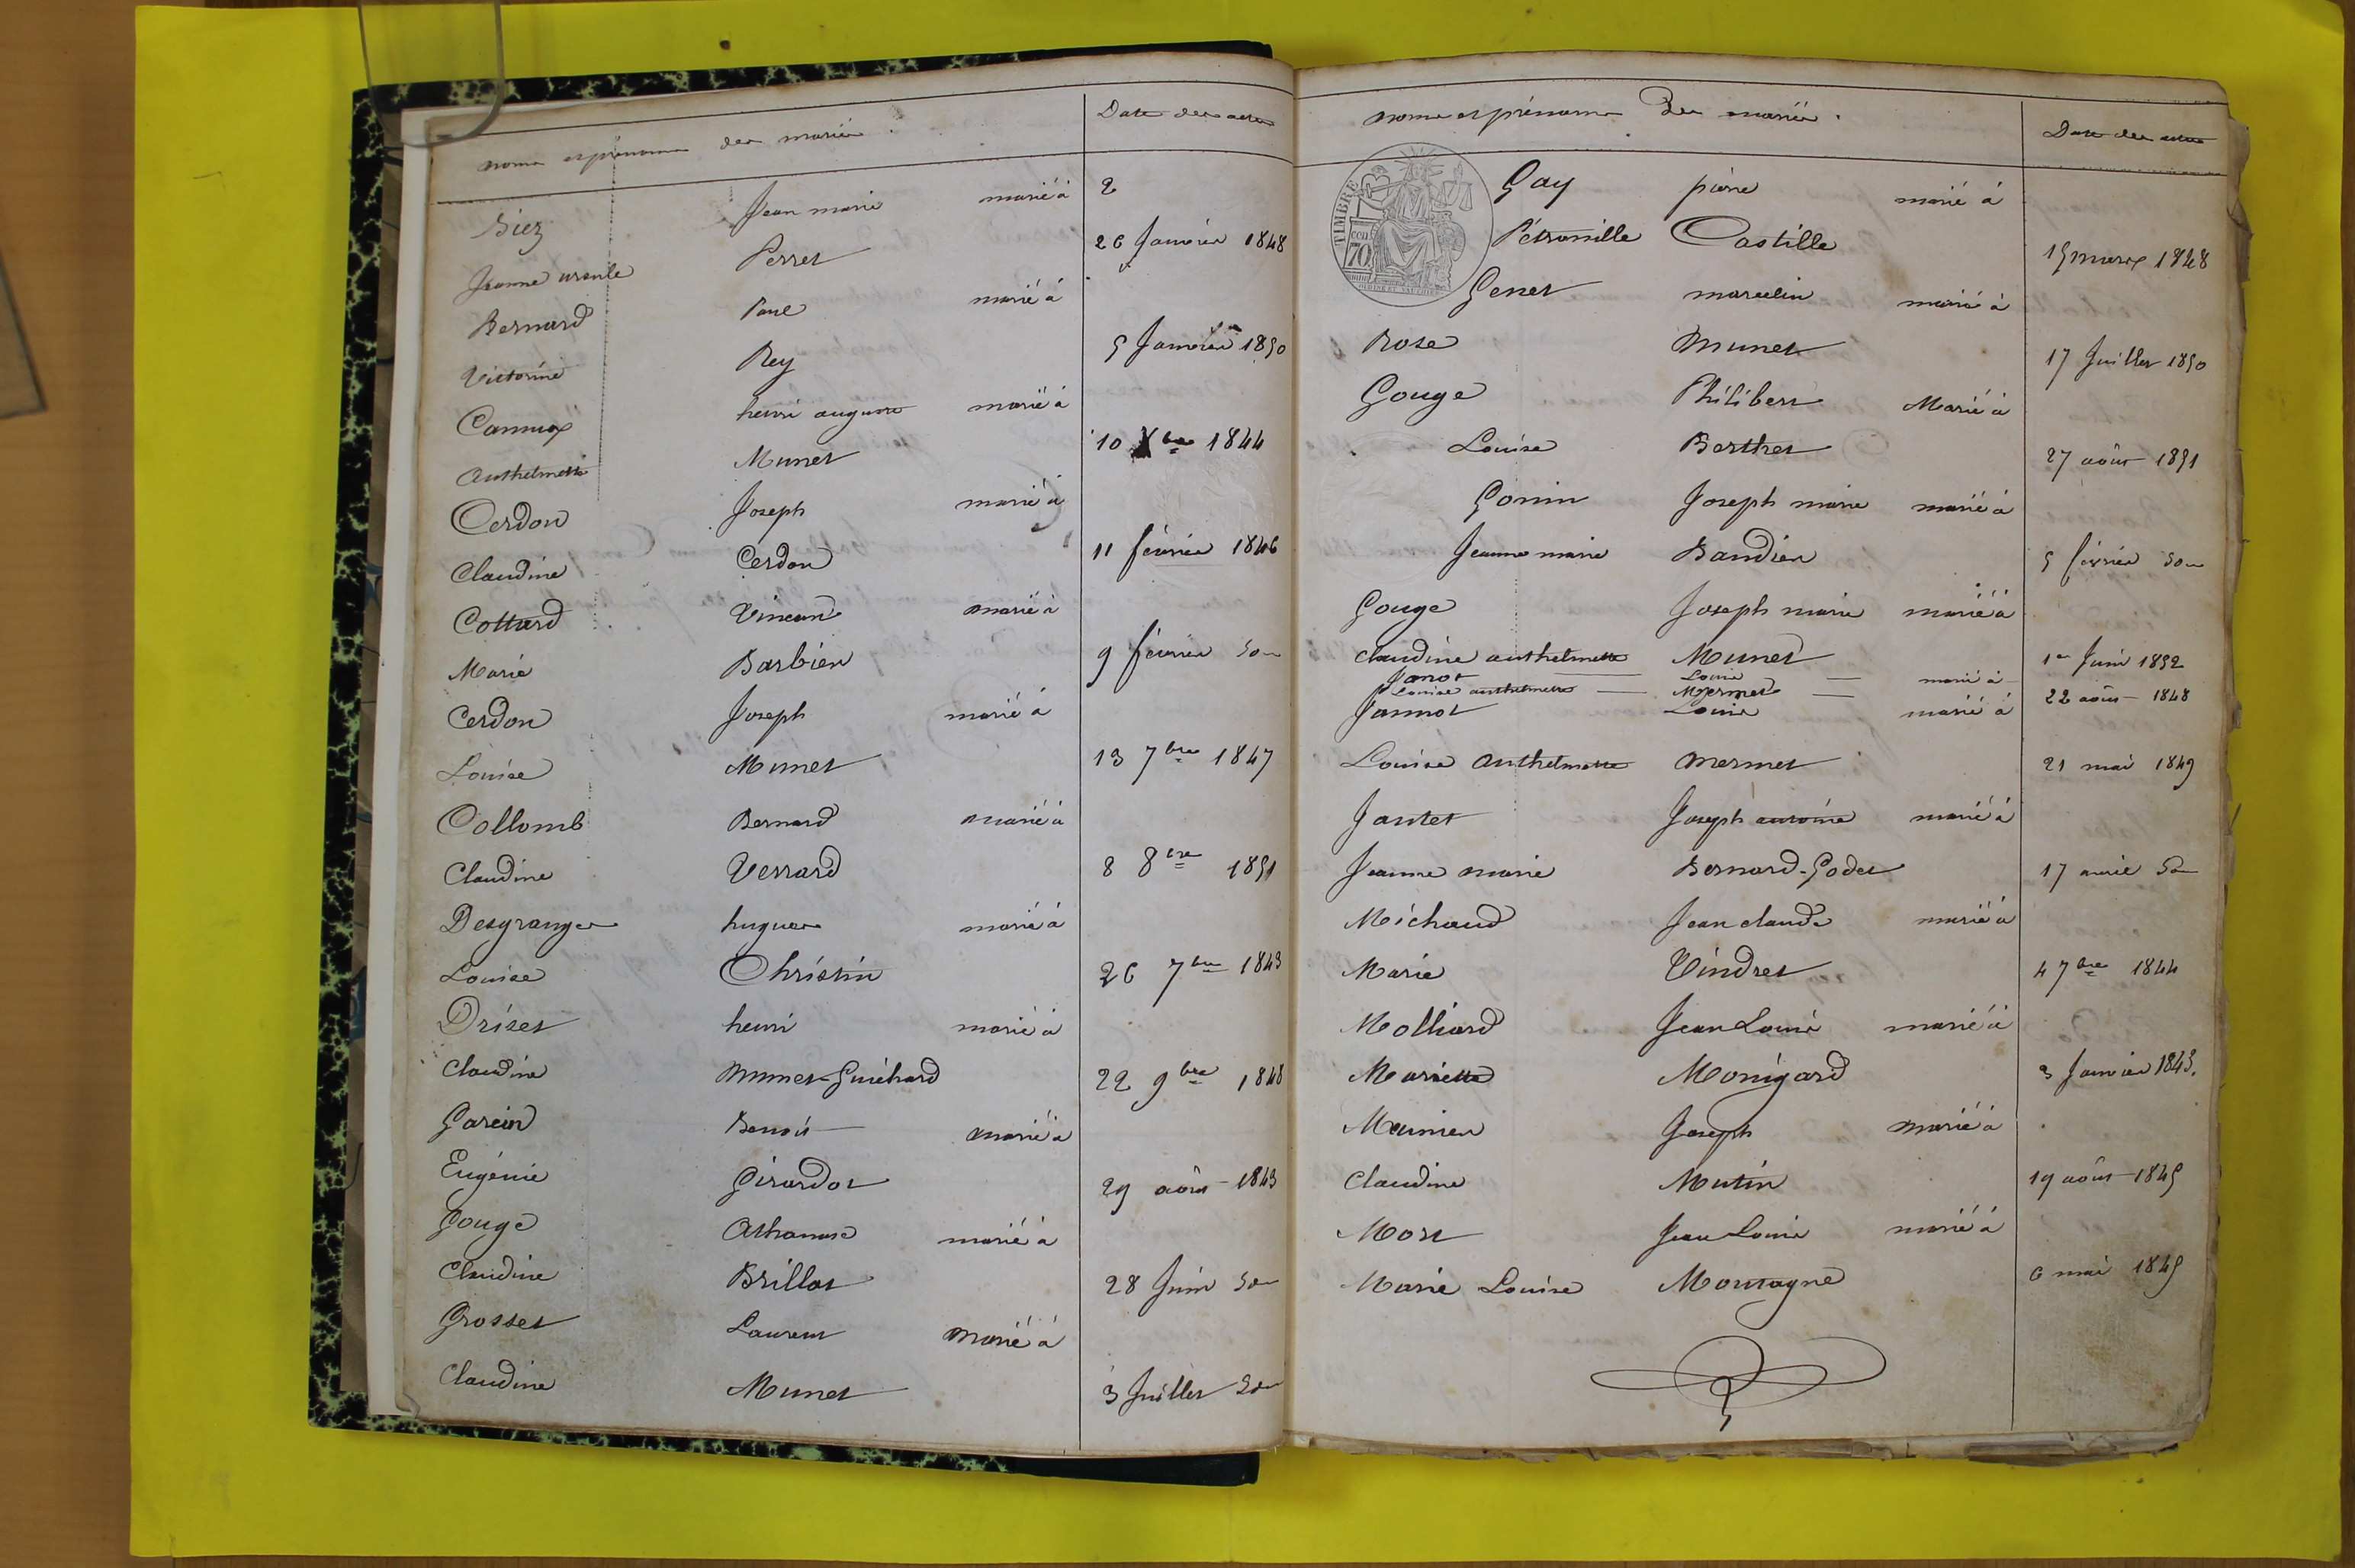 noms et prénoms des mariés. Date des actes
Biez Jean marie marié à 2
Jeanne ursule Perret 26 Janvier 1848
Bernard Paul marié à
Victorine Rey 5 Janvier 1850
Cannux henri auguste marié à
Anthelmette Munet 10 Xbre 1844
Cerdon Joseph marié à
Claudine Cerdon 11 février 1846
Cottard Vincent marié à
Marie Barbier 9 février do
Cerdon Joseph marié à
Louise Munet 13 7bre 1847
Collomb Bernard marié à
Claudine Verrard 8 8bre 1851
Desgranges hugues marié à
Louise Christin 26 7bre 1843
Drizet henri marié à
Claudine Munet-Guichard 22 9bre 1848
Garein Benoit marié à
Eugénie Girardot 29 août 1843
Gouge Athanase marié à
Claudine Brillat 28 Juin do
Grosset Laurent marié à
Claudine Munet 3 Juillet do
noms et prénoms Des mariés. Date des actes
TIMBRE
70
Gay pierre marié à
Pétronille Castille 15 mars 1848
Genet marcelin marié à
Rose Munet 17 Juillet 1850
Gouge Philibert Marié à
Louise Berthet 27 août 1851
Gonin Joseph marie marié à
Jeanne marie Bandier 5 février do
Gouge Joseph marie marié à
Claudine anthelmette Munet 1er Juin 1852
Janot Louis marié à
Louise anthelmette Mermet 22 août 1848
Jannot Louis marié à
Louise Anthelmette mermet 21 mai 1849
Jantet Joseph antoine marié à
Jeanne marie Bernard-Godet 17 avril do
Michaud Jean claude marié à
Marie Vindret 4 7bre 1844
Molliard Jean Louis marié à
Mariette Monigard 3 Janvier 1843.
Meunier Joseph marié à
Claudine Mutin 19 août 1845
Mort Jean Louis marié à
Marie Louise Montagne 6 mai 1845